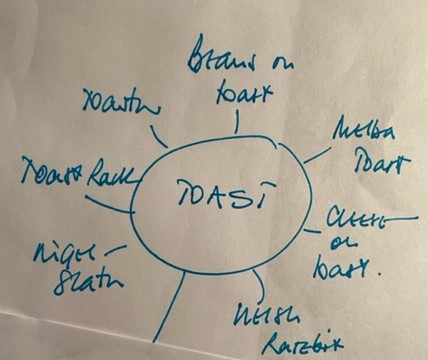 Beans on
toast
Toaster
Melba
Toast
Toast Rack
TOAST
Cheese
on
toast.
Nigel
Slater
Welsh
Rarebit